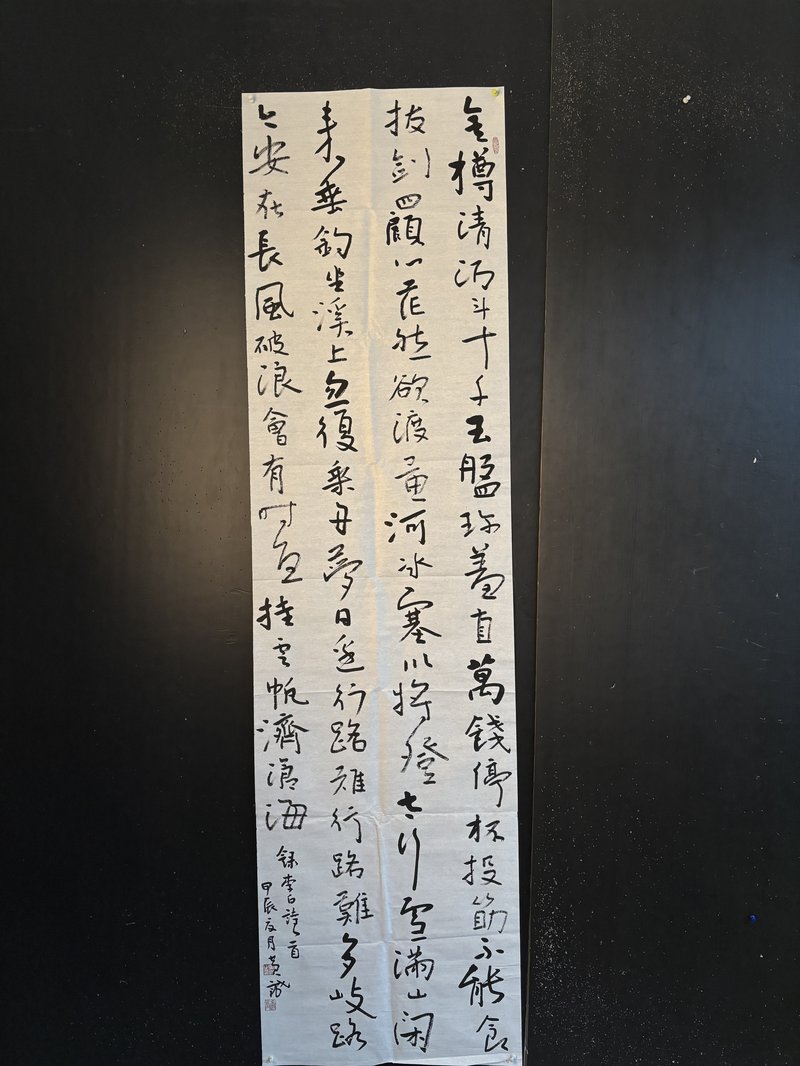 金樽清酒斗十千玉盤珍羞直萬錢停杯投筯不能食
拔劍四顧心茫然欲渡黃河冰塞川將登太行雪滿山閑
來垂釣坐溪上忽復乘舟夢日邊行路難行路難多歧路
今安在長風破浪會有時直挂雲帆濟滄海
錄李白詩一首
甲辰夏月黃誠